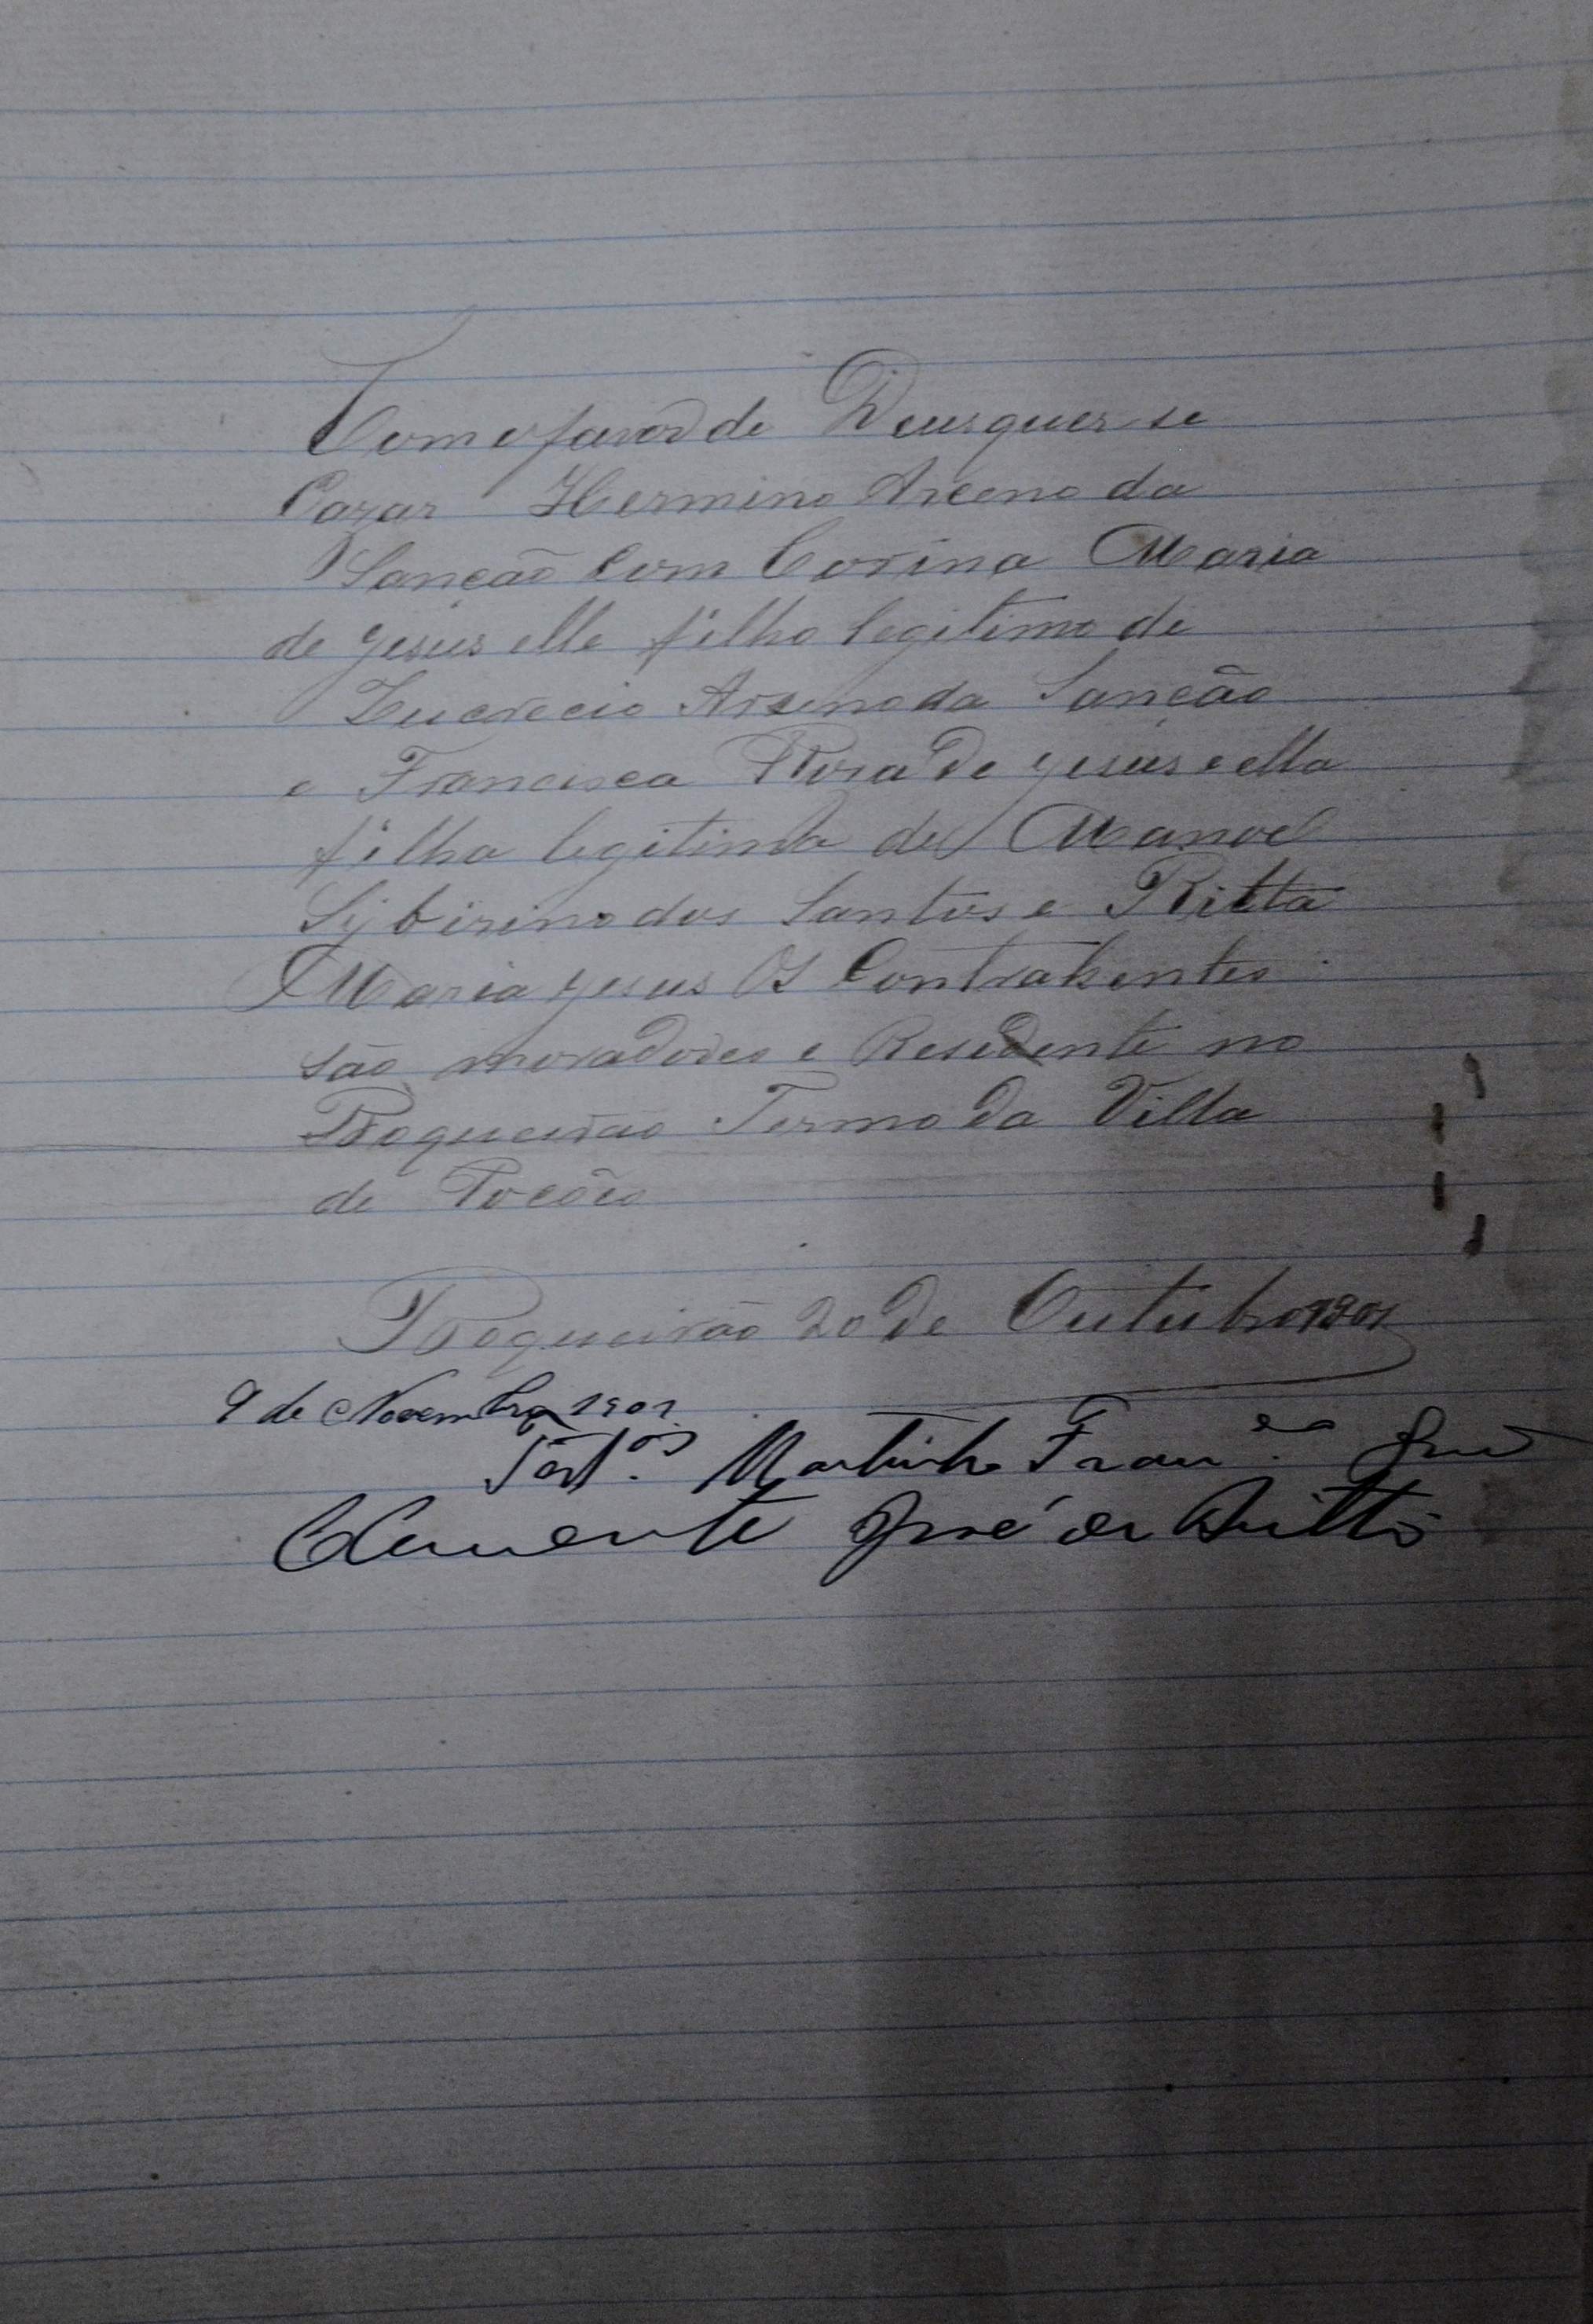 Com o favor de Deus quer se
Cazar Hermino Arceno da
Sancão Com Corina Maria
de Jesus elle filho legitimo de
Lucrecio Arseno da Sancão
e Francisca Roza de Jesus e ella
filha legitima de Manoel
dos Santos e Ritta
Maria Jesus Os Contrahentes
são moradores e Residente no
Boqueirão Termo da Villa
de Pocões
Boqueirão 20 de Outubro 1901
9 de Novembro 1901
Martinho Fran.co José
Clemente José de Britto